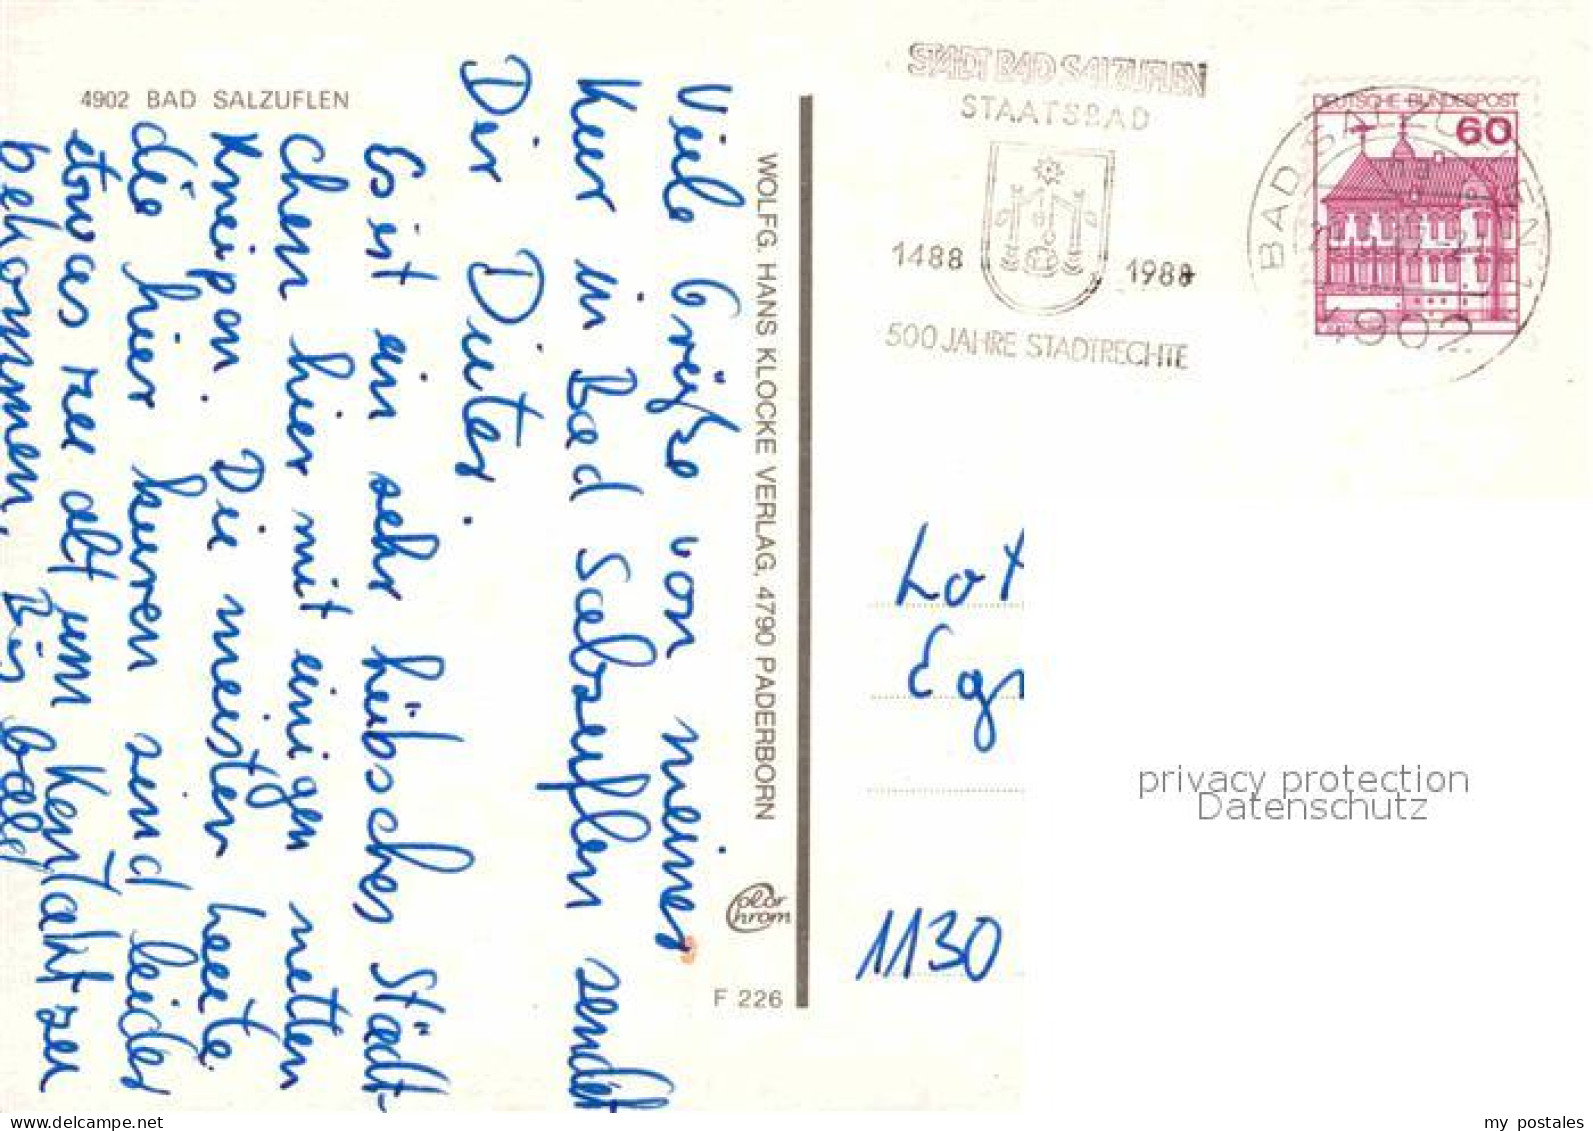 4902 BAD SALZUFLEN
Viele Grüße von meiner
Kur in Bad Salzuflen sendet
Dir Dieter.
Es ist ein sehr hübsches Städt-
chen hier mit einigen netten
Kneipen. Die meisten heute
die hier kuren sind leider
etwas zu alt um Kontakt zu
bekommen. Bis bald
WOLFG. HANS KLOCKE VERLAG, 4790 PADERBORN
Color
Chrom
F 226
STADT BAD SALZUFLEN
STAATSBAD
1488 1988
500 JAHRE STADTRECHTE
DEUTSCHE BUNDESPOST
60
BAD SALZUFLEN 1
4902
Lot
Egr
1130
privacy protection
Datenschutz
my postales